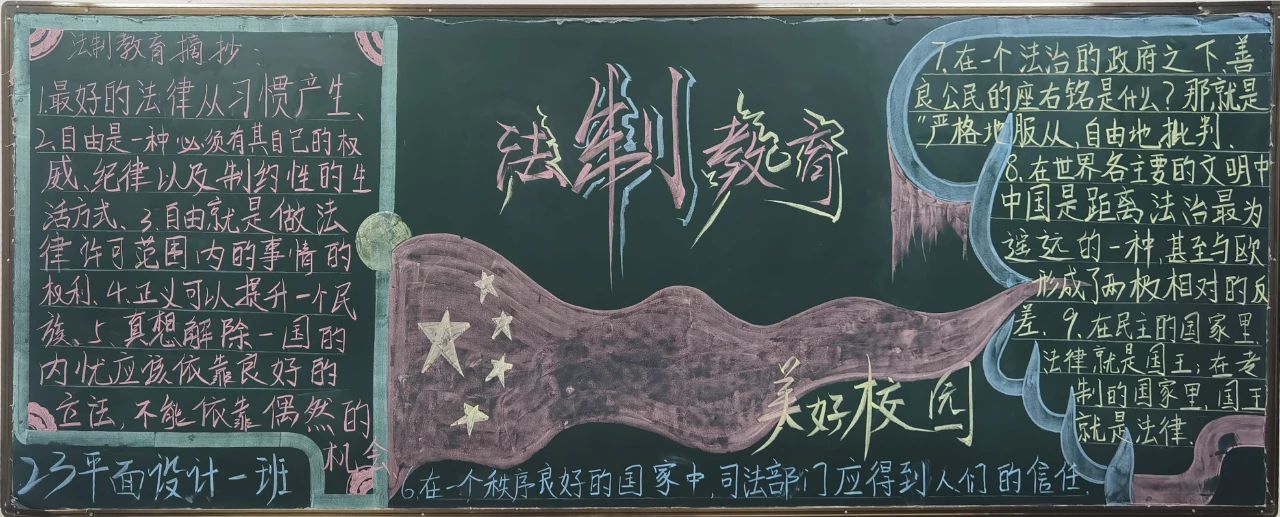 法制教育摘抄:
1.最好的法律从习惯产生、
2.自由是一种必须有其自己的权
威、纪律以及制约性的生
活方式、3.自由就是做法
律许可范围内的事情的
权利、4.正义可以提升一个民
族、5、真想解除一国的
内忧应该依靠良好的
立法,不能依靠偶然的
机会
23平面设计一班
法制教育
美好校园
6.在一个秩序良好的国家中,司法部门应得到人们的信任、
7.在一个法治的政府之下、善
良公民的座右铭是什么?那就是
"严格地服从、自由地批判、
8.在世界各主要的文明中
中国是距离法治最为
遥远的一种,甚至与欧
形成了两极相对的反
差、9.在民主的国家里、
法律就是国王;在专
制的国家里,国王
就是法律、